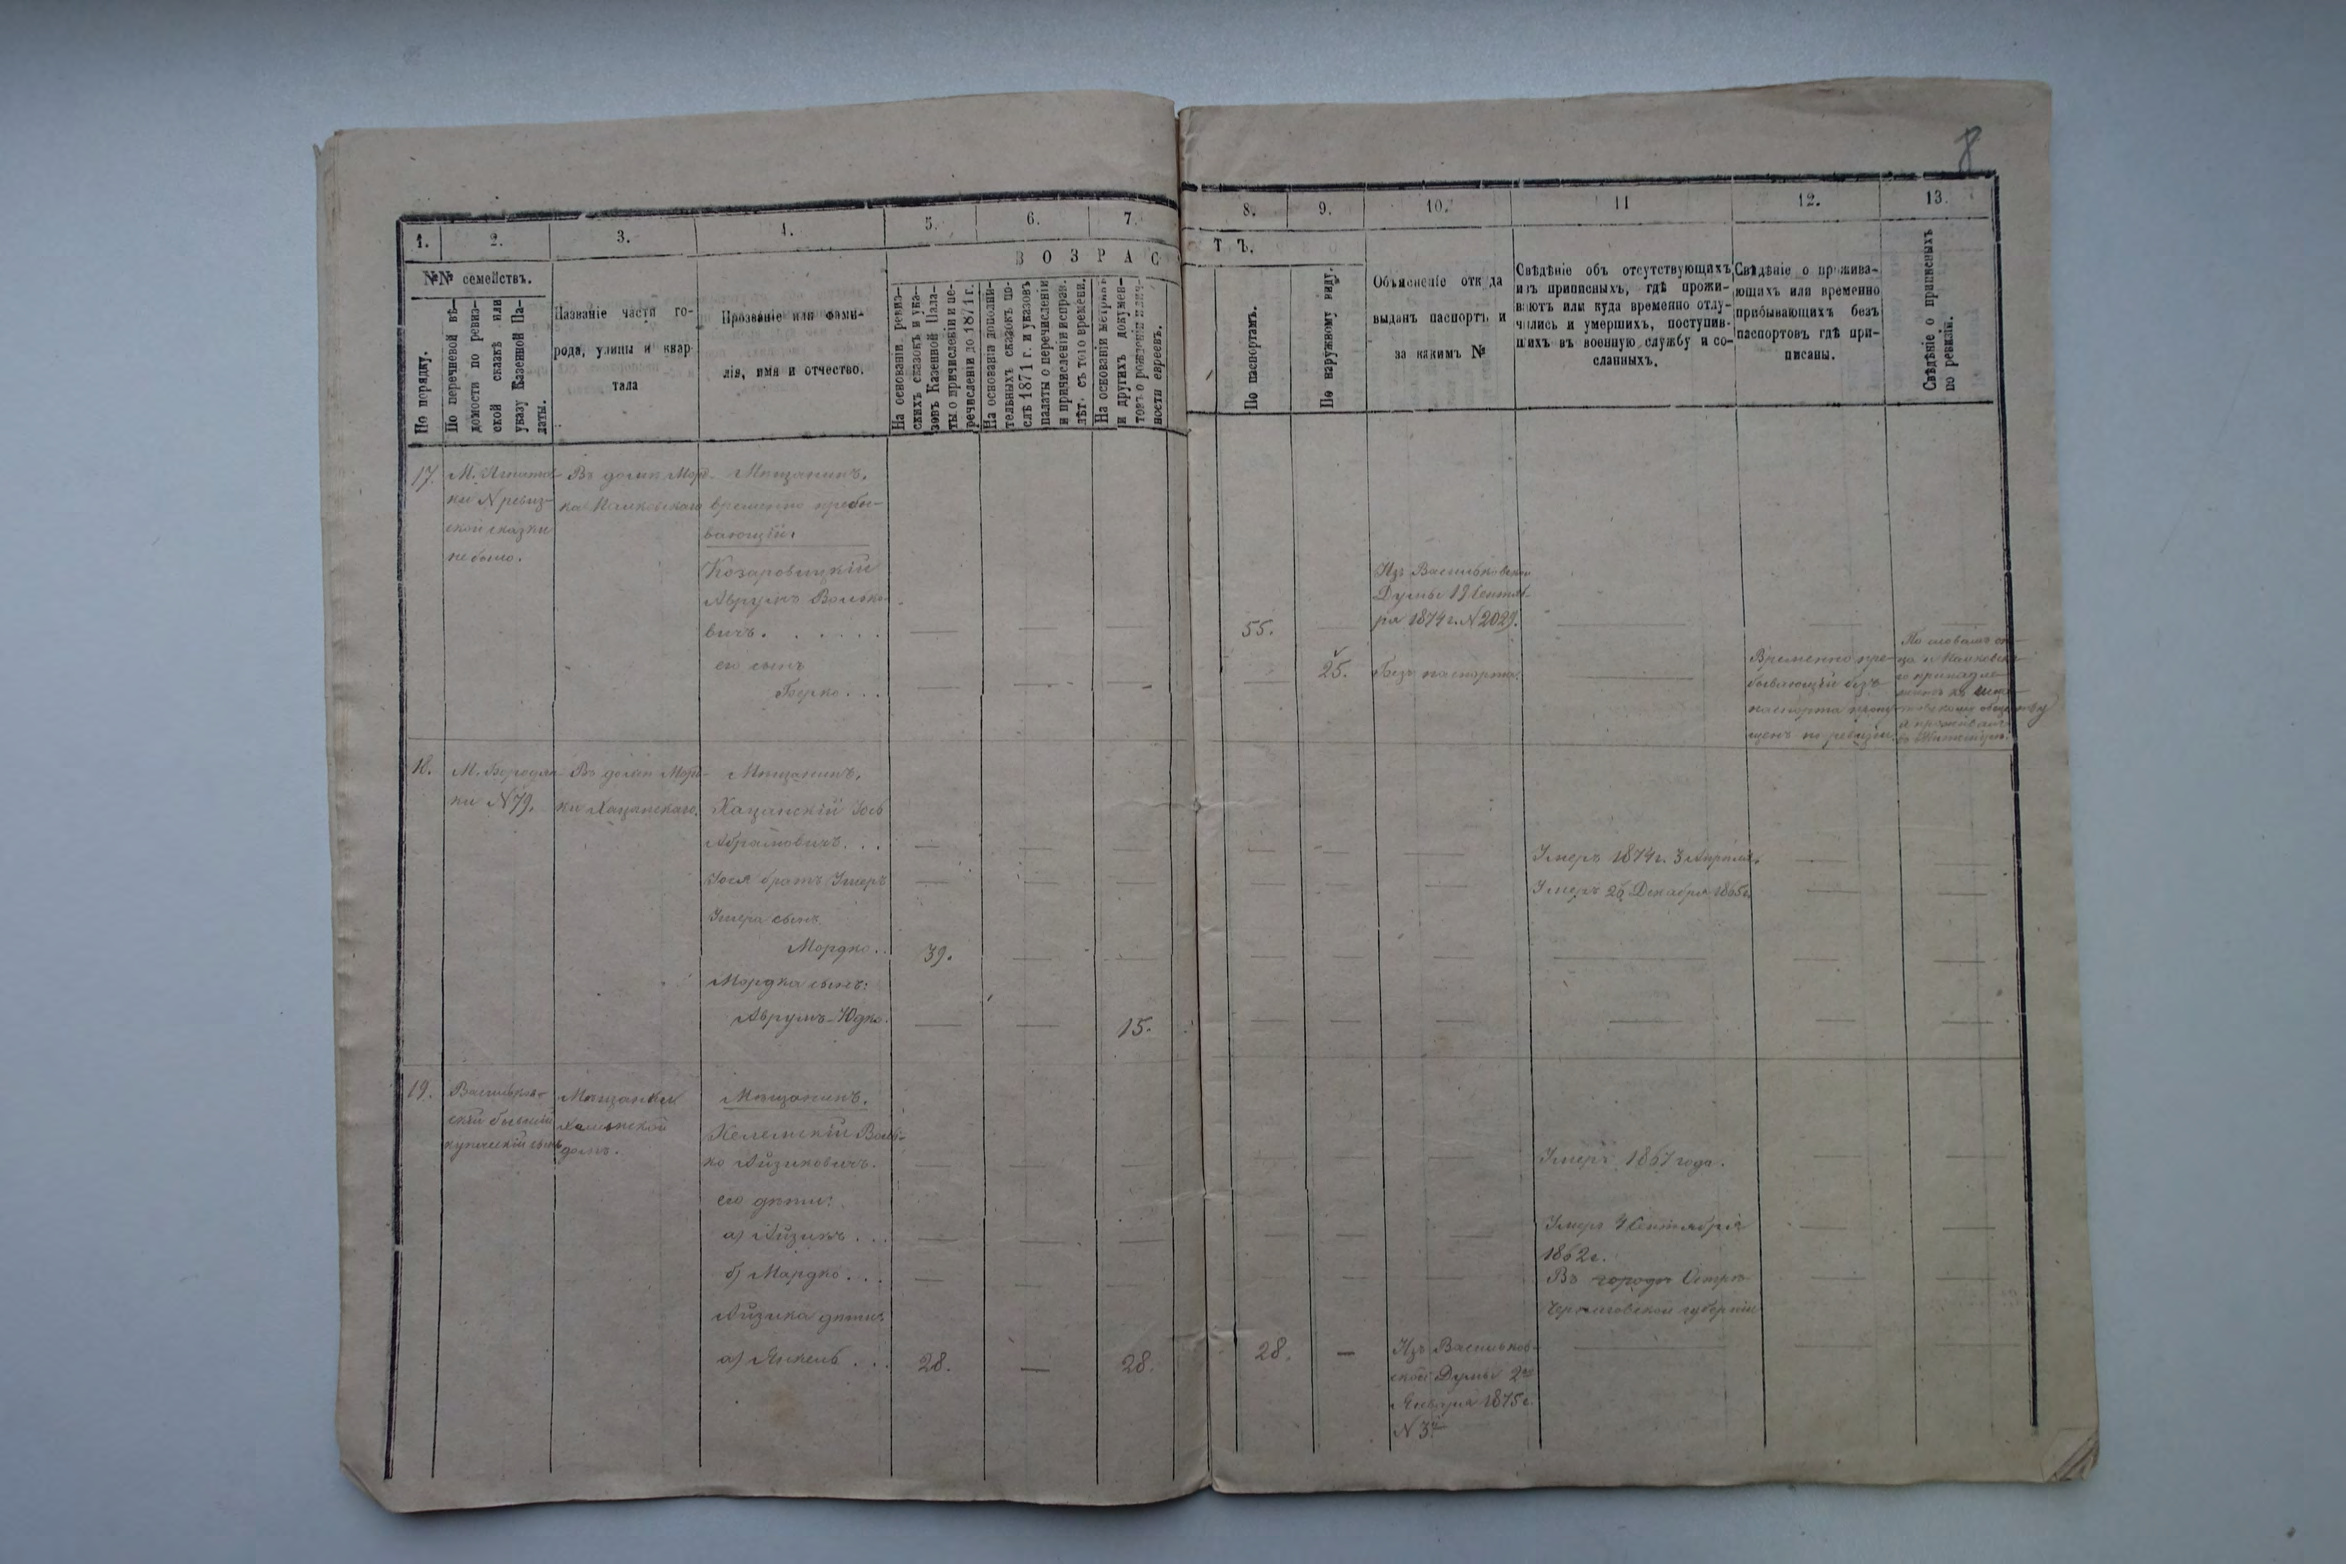 8
1.
2.
3.
4.
5.
6.
7.
8.
9.
10.
11
12.
13.
№№ семействъ.
По порядку.
По перечневой вѣ-
домости по ревиз-
ской сказкѣ или
указу Казенной Па-
латы.
Названіе части го-
рода, улицы и квар-
тала
Прозваніе или фами-
лія, имя и отчество.
В О З Р А С
Т Ъ.
На основаніи ревиз-
скихъ сказокъ и ука-
зовъ Казенной Пала-
ты о причисленіи и пе-
речисленіи до 1871 г.
На основаніи дополни-
тельныхъ сказокъ по-
слѣ 1871 г. и указовъ
палаты о перечисленіи
и причисленіи исправ.
лѣт. съ того времени.
На основаніи метрикъ
и другихъ докумен-
товъ о рожденіи
ности евреевъ.
По паспортамъ.
По наружному виду.
Объясненіе откуда
выданъ паспортъ и
за какимъ №
Свѣдѣніе объ отсутствующихъ
изъ приписныхъ, гдѣ прожи-
ваютъ или куда временно отлу-
чились и умершихъ, поступив-
шихъ въ военную службу и со-
сланныхъ.
Свѣдѣніе о прожива-
ющихъ или временно
прибывающихъ безъ
паспортовъ гдѣ при-
писаны.
Свѣдѣніе о приписныхъ
по ревизіи.
17.
М.
ки № ревиз-
ской сказки
не было.
Въ домѣ Морд-
ка
Мѣщанинъ,
временно пребы-
вающій.
Козаровицкій
Аврумъ Волько-
вичъ.
55.
Изъ Васильковской
Думы 19 Сентяб-
ря 1874 г. № 2029.
его сынъ
Берко...
25.
Безъ паспорта.
Временно пре-
бывающій безъ
паспорта
щенъ по ревизіи.
По словамъ от-
ца
18.
М. Бородян-
ки № 79.
Въ домѣ Морд-
ки Хацанскаго.
Мѣщанинъ.
Хацанскій Іось
Абрамовичъ...
Умеръ 1874 г. 3 Апрѣля.
Іося братъ Умеръ
Умеръ 26 Декабря 1865 г.
сынъ
Мордко..
39.
Мордка сынъ:
Аврумъ-Юдко.
15.
19.
Васильков-
скій бывшій
купеческій сынъ
Мѣщанки
домъ.
Мѣщанинъ.
Келемскій Воль-
ко Айзиковичъ.
Умеръ 1867 года.
его дѣти:
а) Айзикъ...
Умеръ 4 Сентября
1862 г.
б) Мордко...
Въ городѣ Острѣ
Черниговской губерніи
Айзика дѣти:
а) Янкель...
28.
28.
28.
Изъ Васильков-
ской Думы 2го
Января 1875 г.
№ 3й